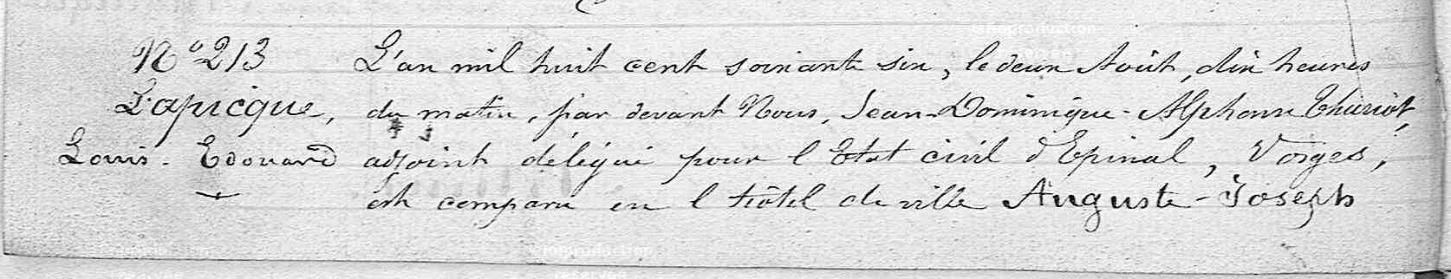 N° 213 L'an mil huit cent soixante six, le deux Août, dix heures
Lapicque, du matin, par devant Nous, Jean-Dominique-Alphonse Thuriot,
Louis-Edouard adjoint délégué pour l'Etat civil d'Epinal, Vosges,
est comparu en l'hôtel de ville Auguste-Joseph